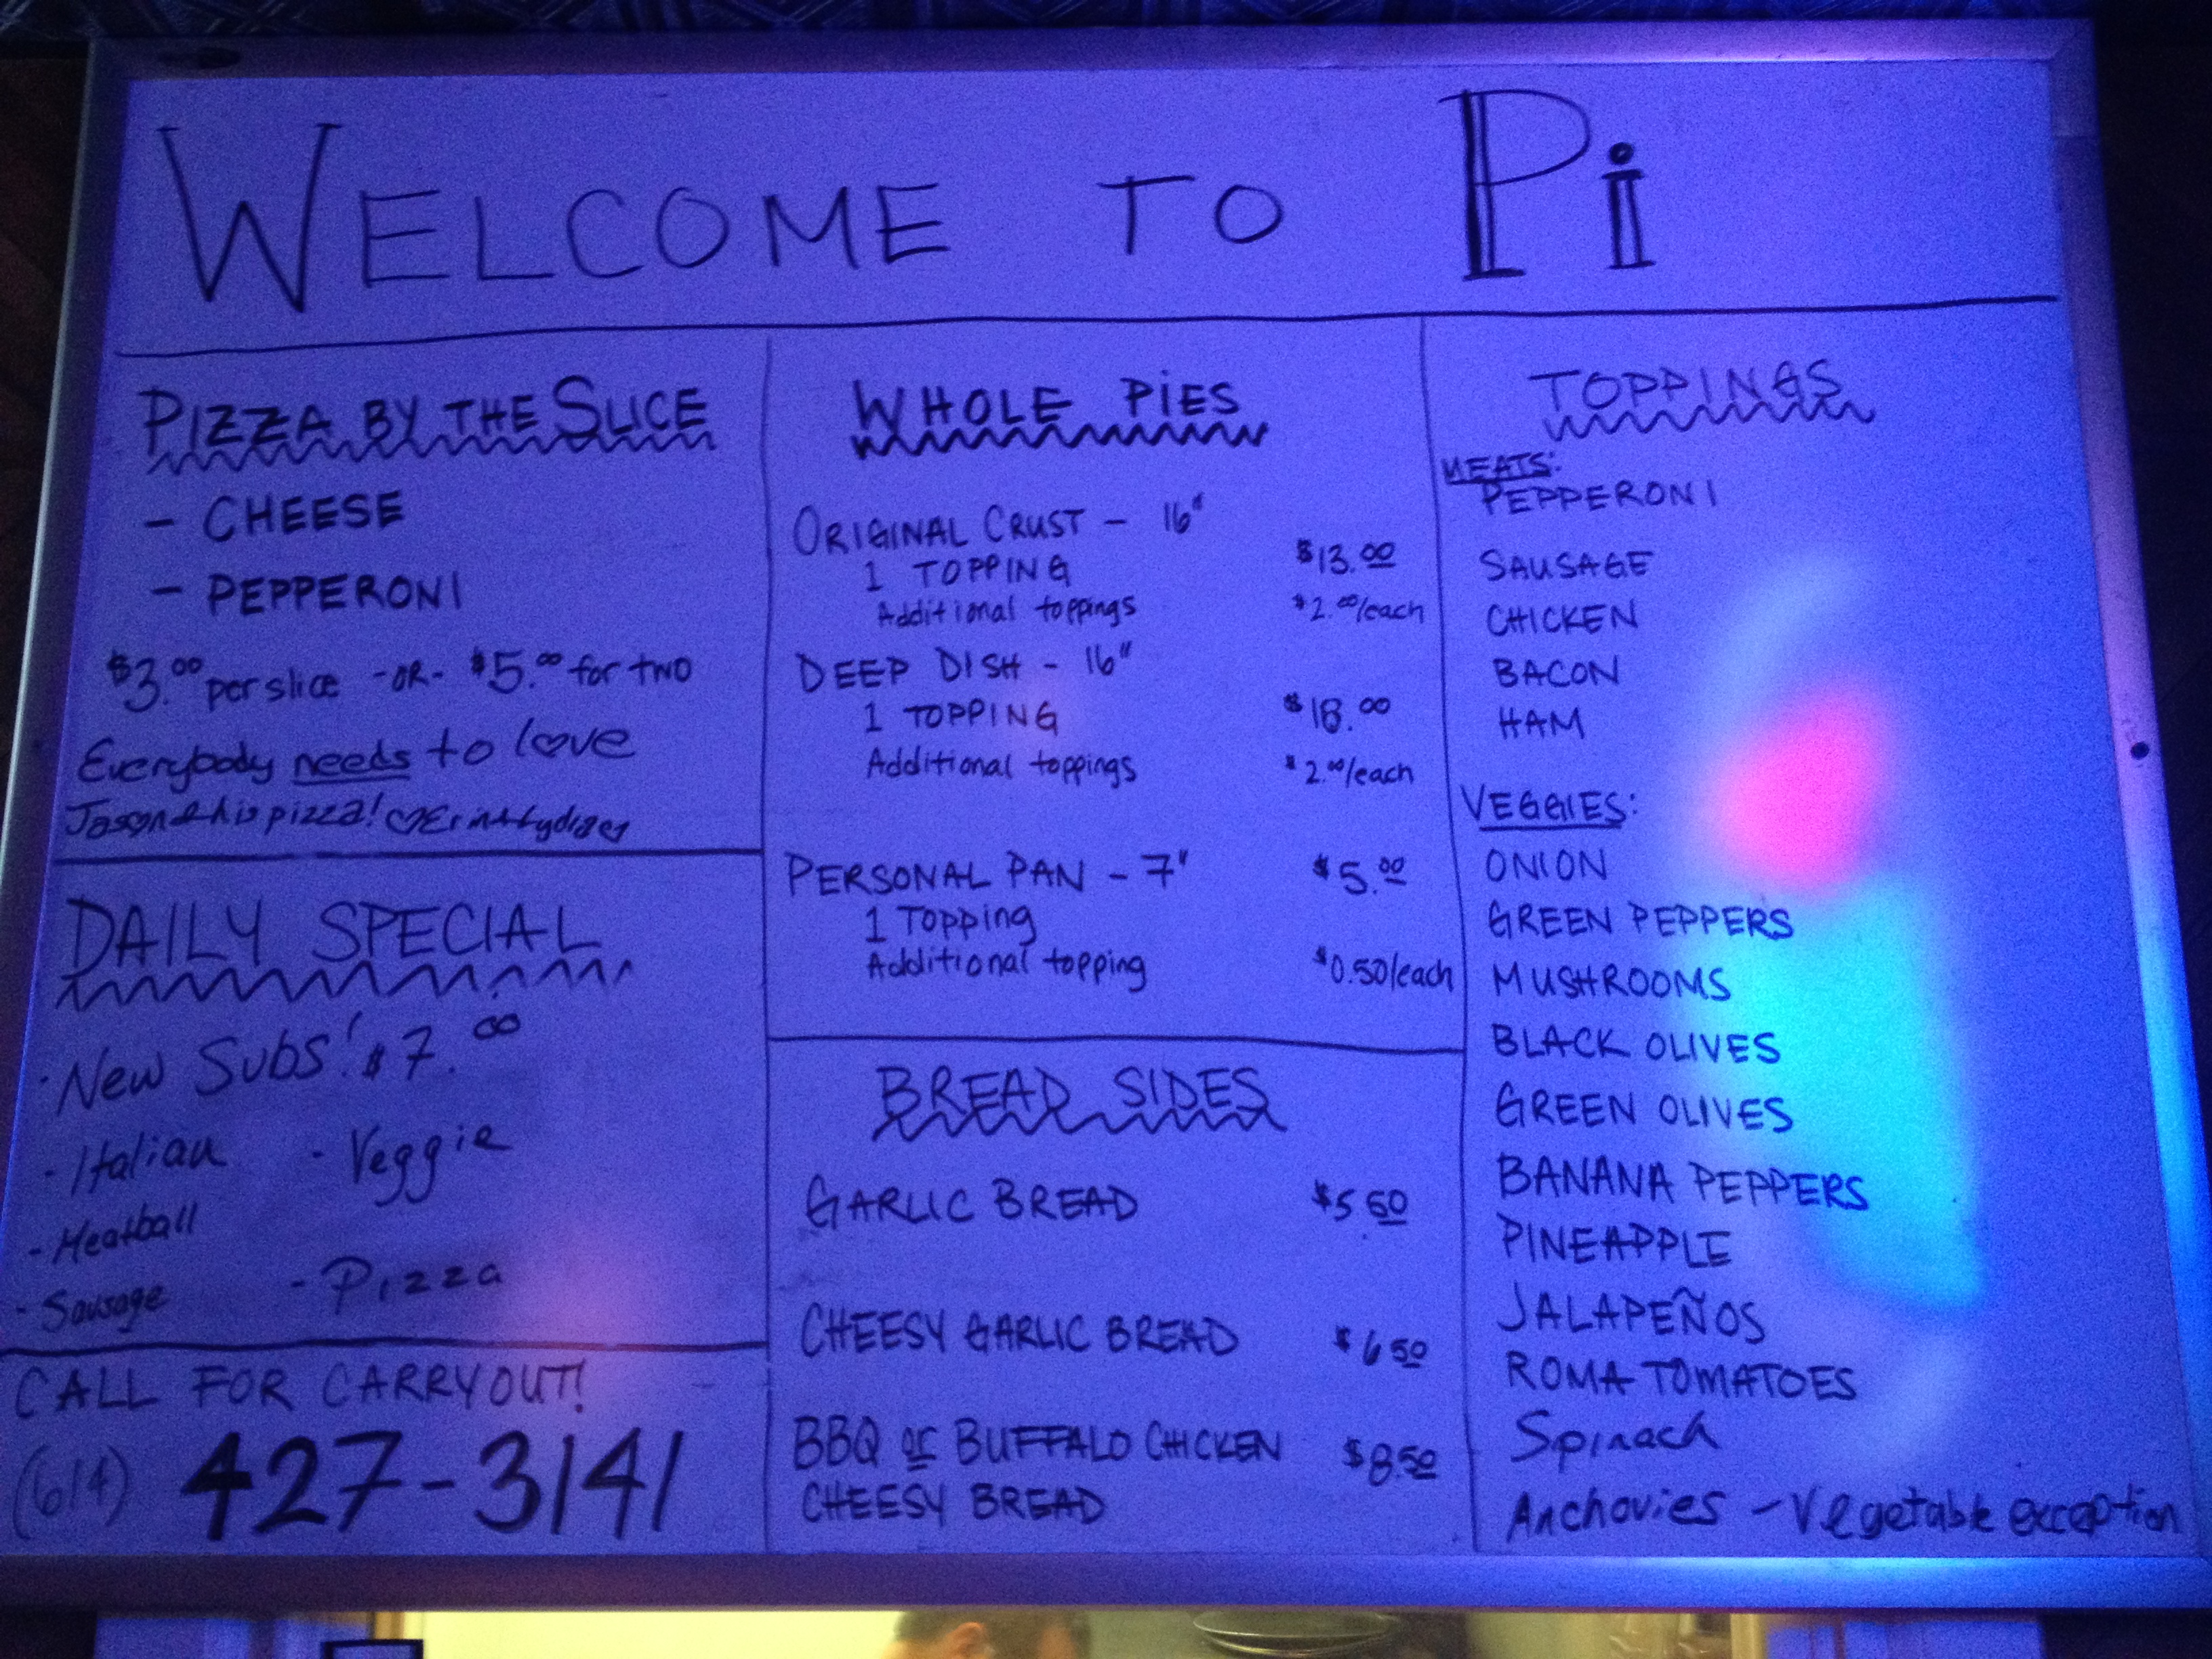 WELCOME TO Pi
PIZZA BY THE SLICE
- CHEESE
- PEPPERONI
$3.00 per slice -OR- $5.00 for two
Everybody needs to love
Jason & his pizza! ♡Erin
DAILY SPECIAL
· New Subs! $7.00
- Italian - Veggie
- Meatball
- Sausage - Pizza
CALL FOR CARRYOUT!
(614) 427-3141
WHOLE PIES
ORIGINAL CRUST - 16"
1 TOPPING $13.00
Additional toppings $2.00/each
DEEP DISH - 16"
1 TOPPING $18.00
Additional toppings $2.00/each
PERSONAL PAN - 7" $5.00
1 Topping
Additional topping $0.50/each
BREAD SIDES
GARLIC BREAD $5 50
CHEESY GARLIC BREAD $6 50
BBQ or BUFFALO CHICKEN $8.50
CHEESY BREAD
TOPPINGS
MEATS:
PEPPERONI
SAUSAGE
CHICKEN
BACON
HAM
VEGGIES:
ONION
GREEN PEPPERS
MUSHROOMS
BLACK OLIVES
GREEN OLIVES
BANANA PEPPERS
PINEAPPLE
JALAPEÑOS
ROMA TOMATOES
Spinach
Anchovies - Vegetable exception